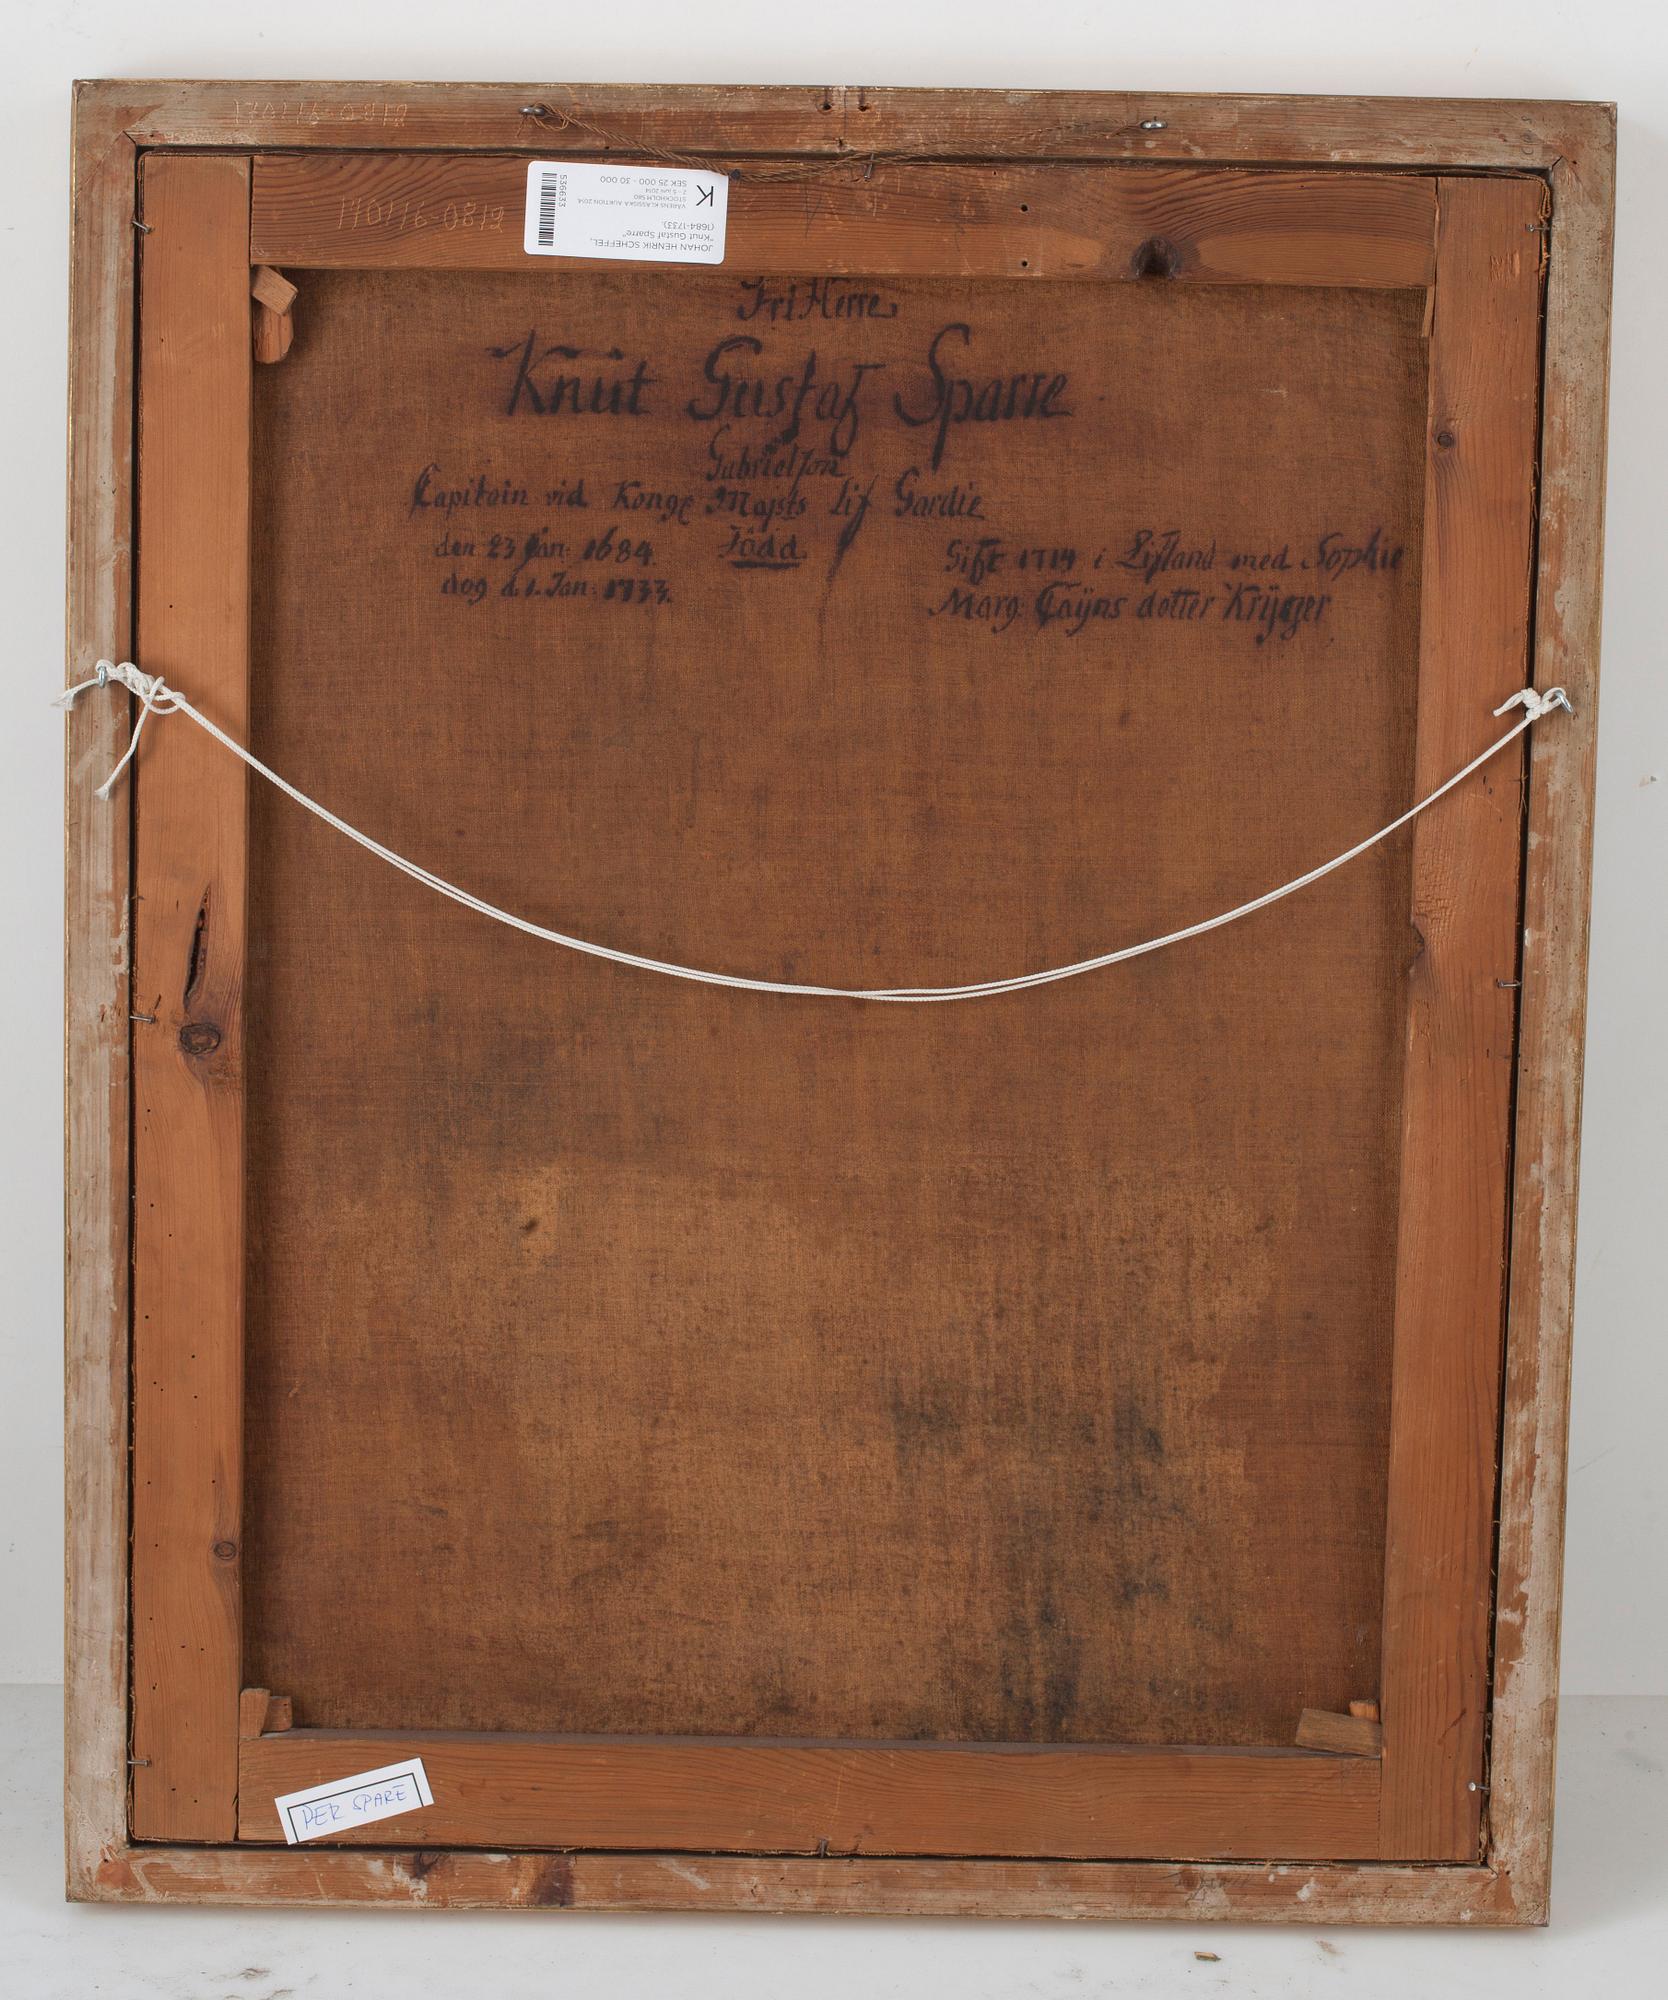 170116-0819
140116-0819
JOHAN HENRIK SCHEFFEL,
"Knut Gustaf Sparre"
(1684-1733).
K
VÅRENS KLASSISKA AUKTION 2014,
STOCKHOLM 580
2 - 5 juni 2014
SEK 25 000 - 30 000
536633
Fri Herre
Knut Gustaf Sparre
Gabrielson
Capitain vid Kongl Majsts Lif Gardie
den 23 Jan: 1684. Född
dog d. 1. Jan: 1733.
Gift 1714 i Lifland med Sophie
Marg: dotter Krÿger
PER SPARE